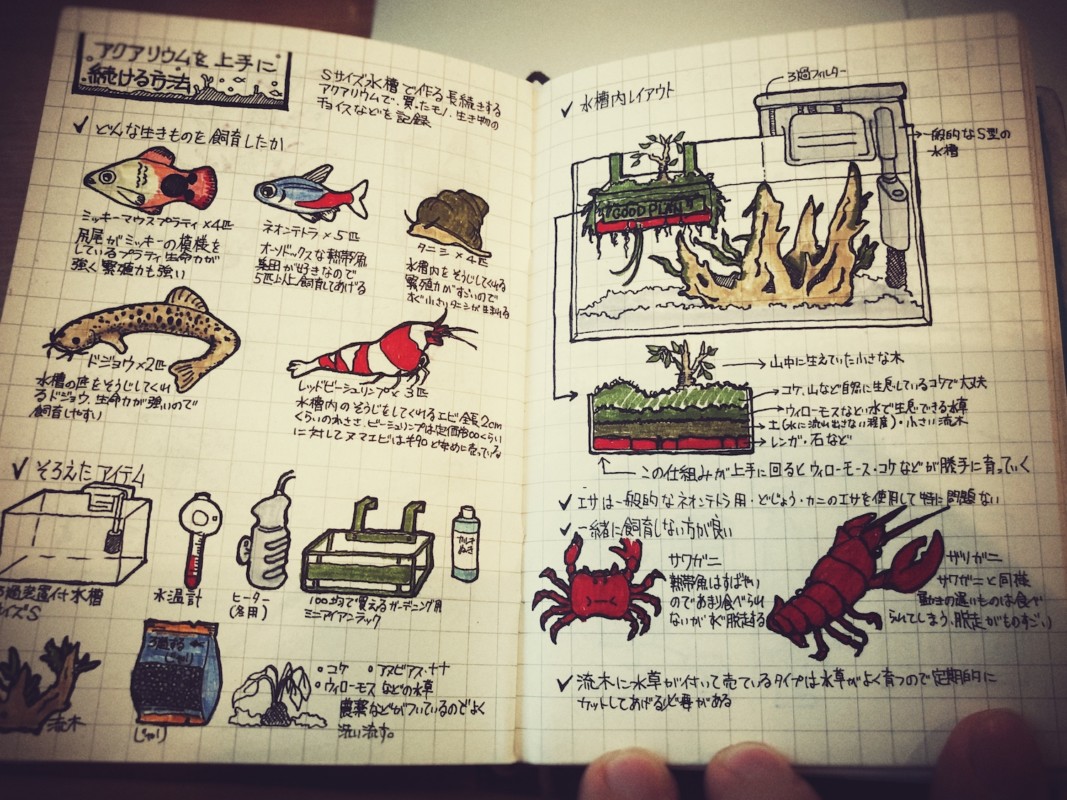 アクアリウムを上手に
続ける方法
Sサイズ水槽で作る長続きする
アクアリウムで、買ったモノ、生き物の
チョイスなどを記録
✓ どんな生きものを飼育したか
ミッキーマウスプラティ×4匹
尻尾がミッキーの模様を
しているプラティ 生命力が
強く繁殖力も強い
ネオンテトラ×5匹
オーソドックスな熱帯魚
集団が好きなので
5匹以上飼育してあげる
タニシ×4匹
水槽内をそうじしてくれる
繁殖力がすごいので
すぐ小さいタニシが生まれる
ドジョウ×2匹
水槽の底をそうじしてくれ
るドジョウ、生命力が強いので
飼育しやすい
レッドビーシュリンプ×3匹
水槽内のそうじをしてくれるエビ、全長2cm
くらいの小ささ、ビーシュリンプは定価
に対してヌマエビは
✓ そろえたアイテム
過装置付水槽
サイズS
水温計
ヒーター
(冬用)
100均で買えるガーデニング用
ミニアイアンラック
カルキ
ぬき
流木
ろ過する
じゃり
じゃり
・コケ ・アヌビアス・ナナ
・ウィローモスなどの水草
農薬などがついているのでよく
洗い流す。
✓ 水槽内レイアウト
ろ過フィルター
一般的なS型の
水槽
GOOD PLAN
山中に生えていた小さな木
コケ、山など自然に生息しているコケで大丈夫
ウィローモスなどい水で生息できる水草
土(水に流れ出さない程度)・小さい流木
レンガ・石など
この仕組みが上手に回るとウィローモース・コケなどが勝手に育っていく
✓ エサは一般的なネオンテトラ用・どじょう・カニのエサを使用して特に問題ない
✓ 一緒に飼育しない方が良い
サワガニ
熱帯魚はすばやい
のであまり食べられ
ないがすぐ脱走する
ザリガニ
サワガニと同様
動きの遅いものは食べ
られてしまう、脱走がものすごい)
✓ 流木に水草が付いて売ているタイプは水草がよく育つので定期的に
カットしてあげる必要がある